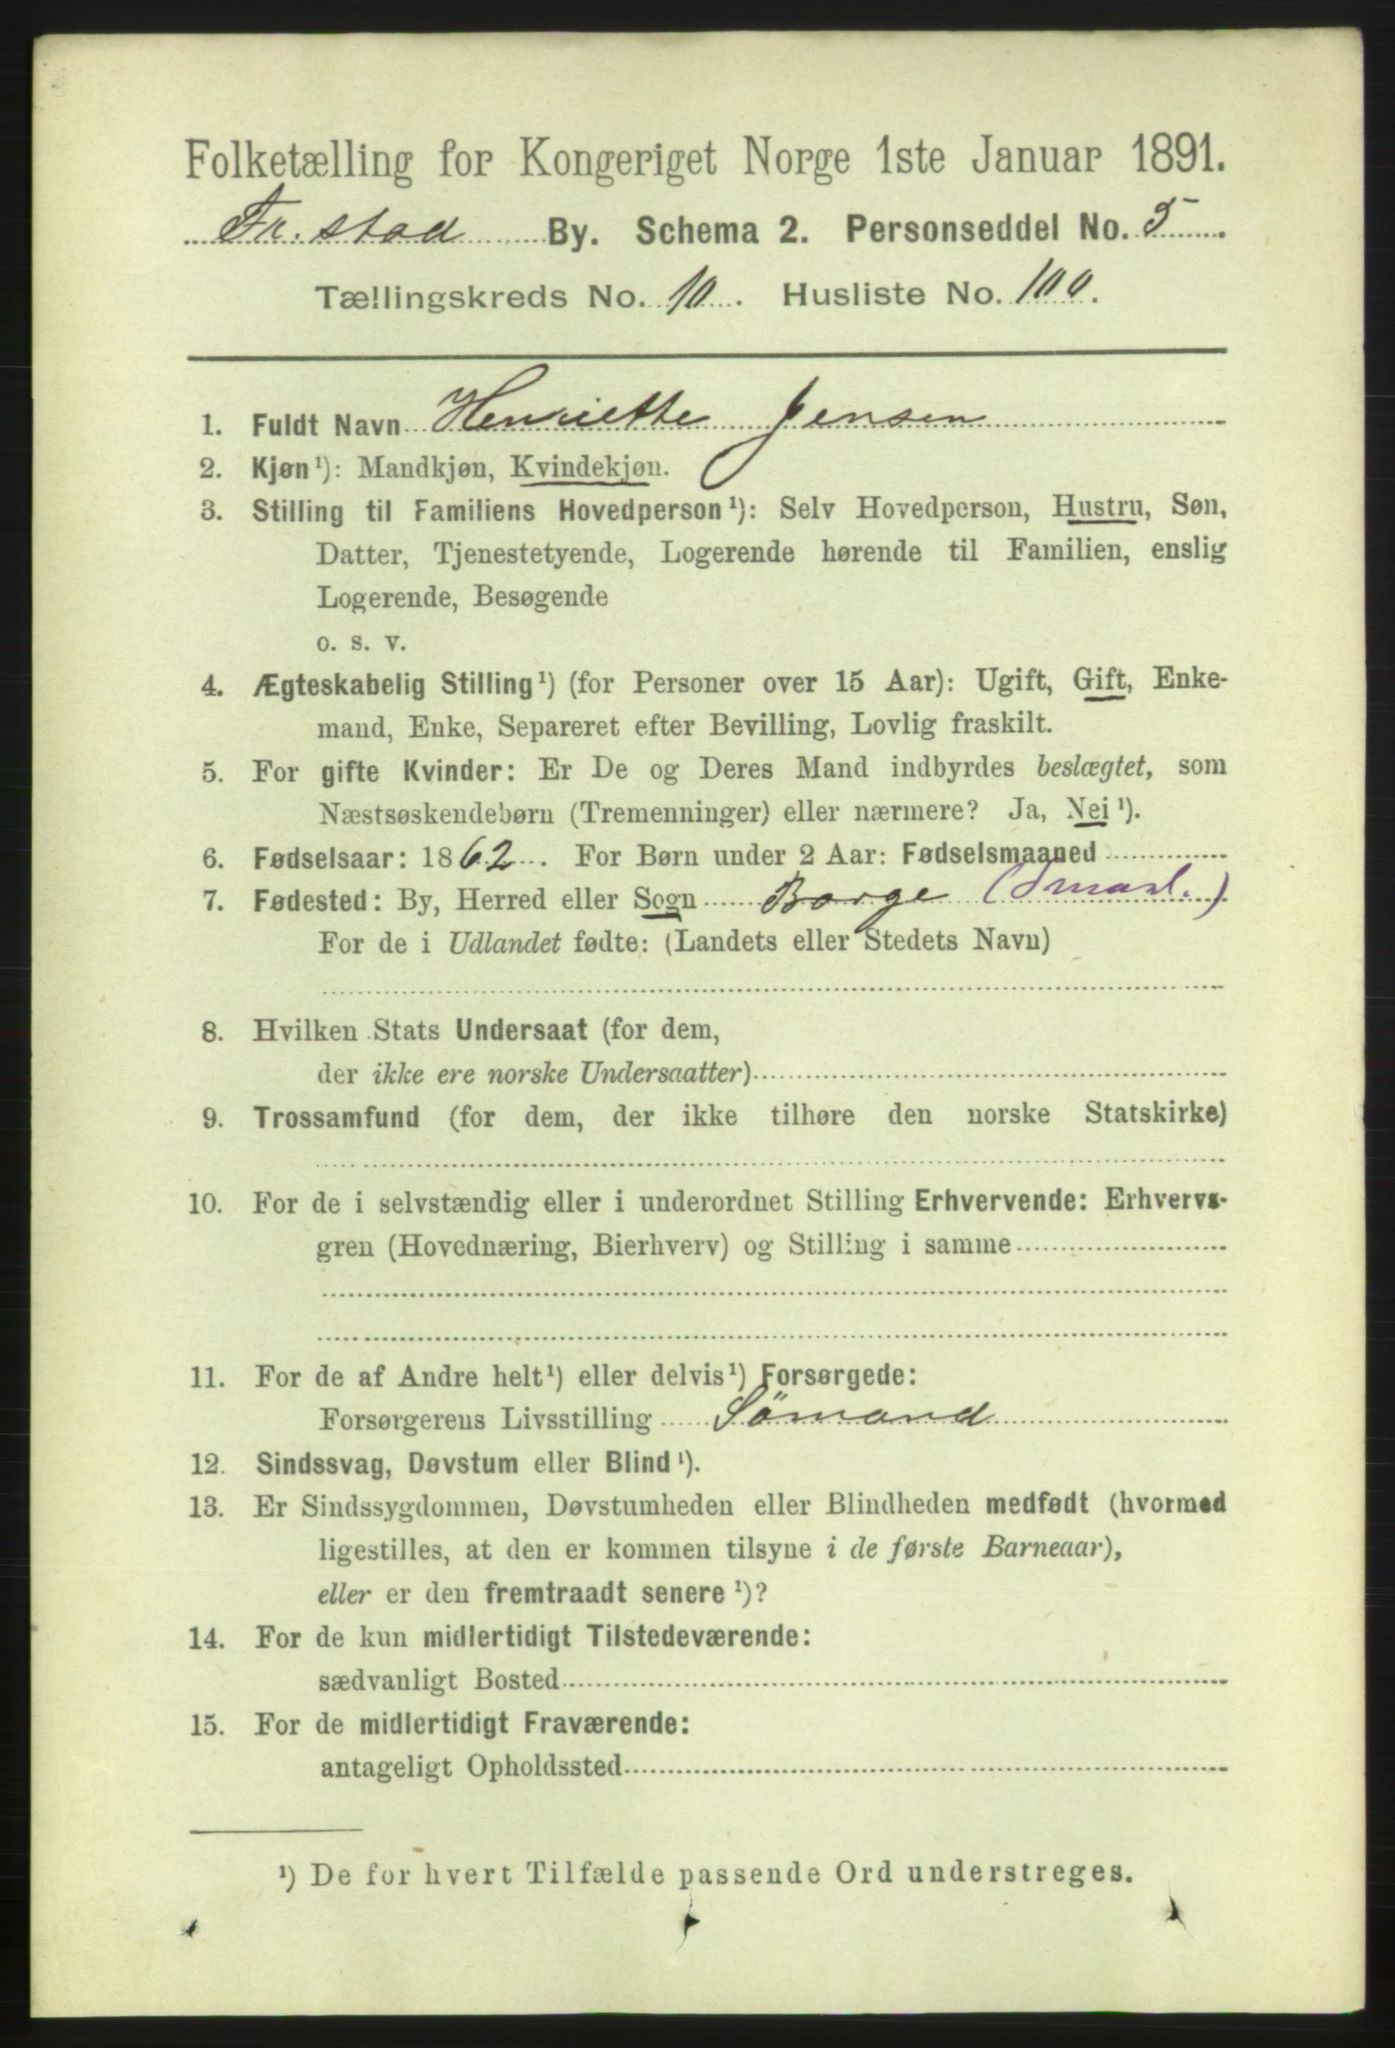 Folketælling for Kongeriget Norge 1ste Januar 1891.
Fr.stad By. Schema 2. Personseddel No. 5
Tællingskreds No. 10. Husliste No. 100.
1. Fuldt Navn Henriette Jensen
2. Kjøn¹): Mandkjøn, Kvindekjøn.
3. Stilling til Familiens Hovedperson¹): Selv Hovedperson, Hustru, Søn,
Datter, Tjenestetyende, Logerende hørende til Familien, enslig
Logerende, Besøgende
o. s. v.
4. Ægteskabelig Stilling¹) (for Personer over 15 Aar): Ugift, Gift, Enke-
mand, Enke, Separeret efter Bevilling, Lovlig fraskilt.
5. For gifte Kvinder: Er De og Deres Mand indbyrdes beslægtet, som
Næstsøskendebørn (Tremenninger) eller nærmere? Ja, Nei¹).
6. Fødselsaar: 1862. For Børn under 2 Aar: Fødselsmaaned
7. Fødested: By, Herred eller Sogn Borge (Smaal.)
For de i Udlandet fødte: (Landets eller Stedets Navn)
8. Hvilken Stats Undersaat (for dem,
der ikke ere norske Undersaatter)
9. Trossamfund (for dem, der ikke tilhøre den norske Statskirke)
10. For de i selvstændig eller i underordnet Stilling Erhvervende: Erhvervs-
gren (Hovednæring, Bierhverv) og Stilling i samme
11. For de af Andre helt¹) eller delvis¹) Forsørgede:
Forsørgerens Livsstilling Sömand
12. Sindssvag, Døvstum eller Blind¹).
13. Er Sindssygdommen, Døvstumheden eller Blindheden medfødt (hvormed
ligestilles, at den er kommen tilsyne i de første Barneaar),
eller er den fremtraadt senere¹)?
14. For de kun midlertidigt Tilstedeværende:
sædvanligt Bosted
15. For de midlertidigt Fraværende:
antageligt Opholdssted
¹) De for hvert Tilfælde passende Ord understreges.